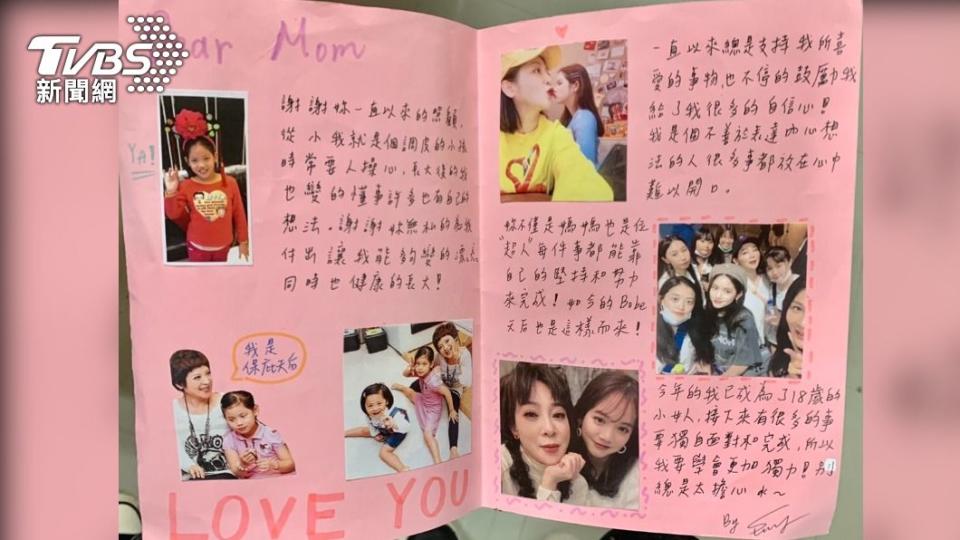 TVBS
新聞網
Dear Mom
YA!
謝謝妳一直以來的照顧,
從小我就是個調皮的小孩
時常要人操心,長大後的我
也變的懂事許多也有自己的
想法。謝謝妳無私的為我
付出讓我能夠變的漂亮
同時也健康的長大!
我是
保庇天后
LOVE YOU
一直以來總是支持我所喜
愛的事物也不停的鼓勵我
給了我很多的自信心!
我是個不善於表達內心想
法的人很多事都放在心中
難以開口。
妳不僅是媽媽也是位
"超人"每件事都能靠
自己的堅持和努力
來完成!如今的Bobe
天后也是這樣而來!
今年的我已成為了18歲的
小女人,接下來有很多的事
要獨自面對和完成,所以
我要學會更加獨力!別
總是太擔心
By